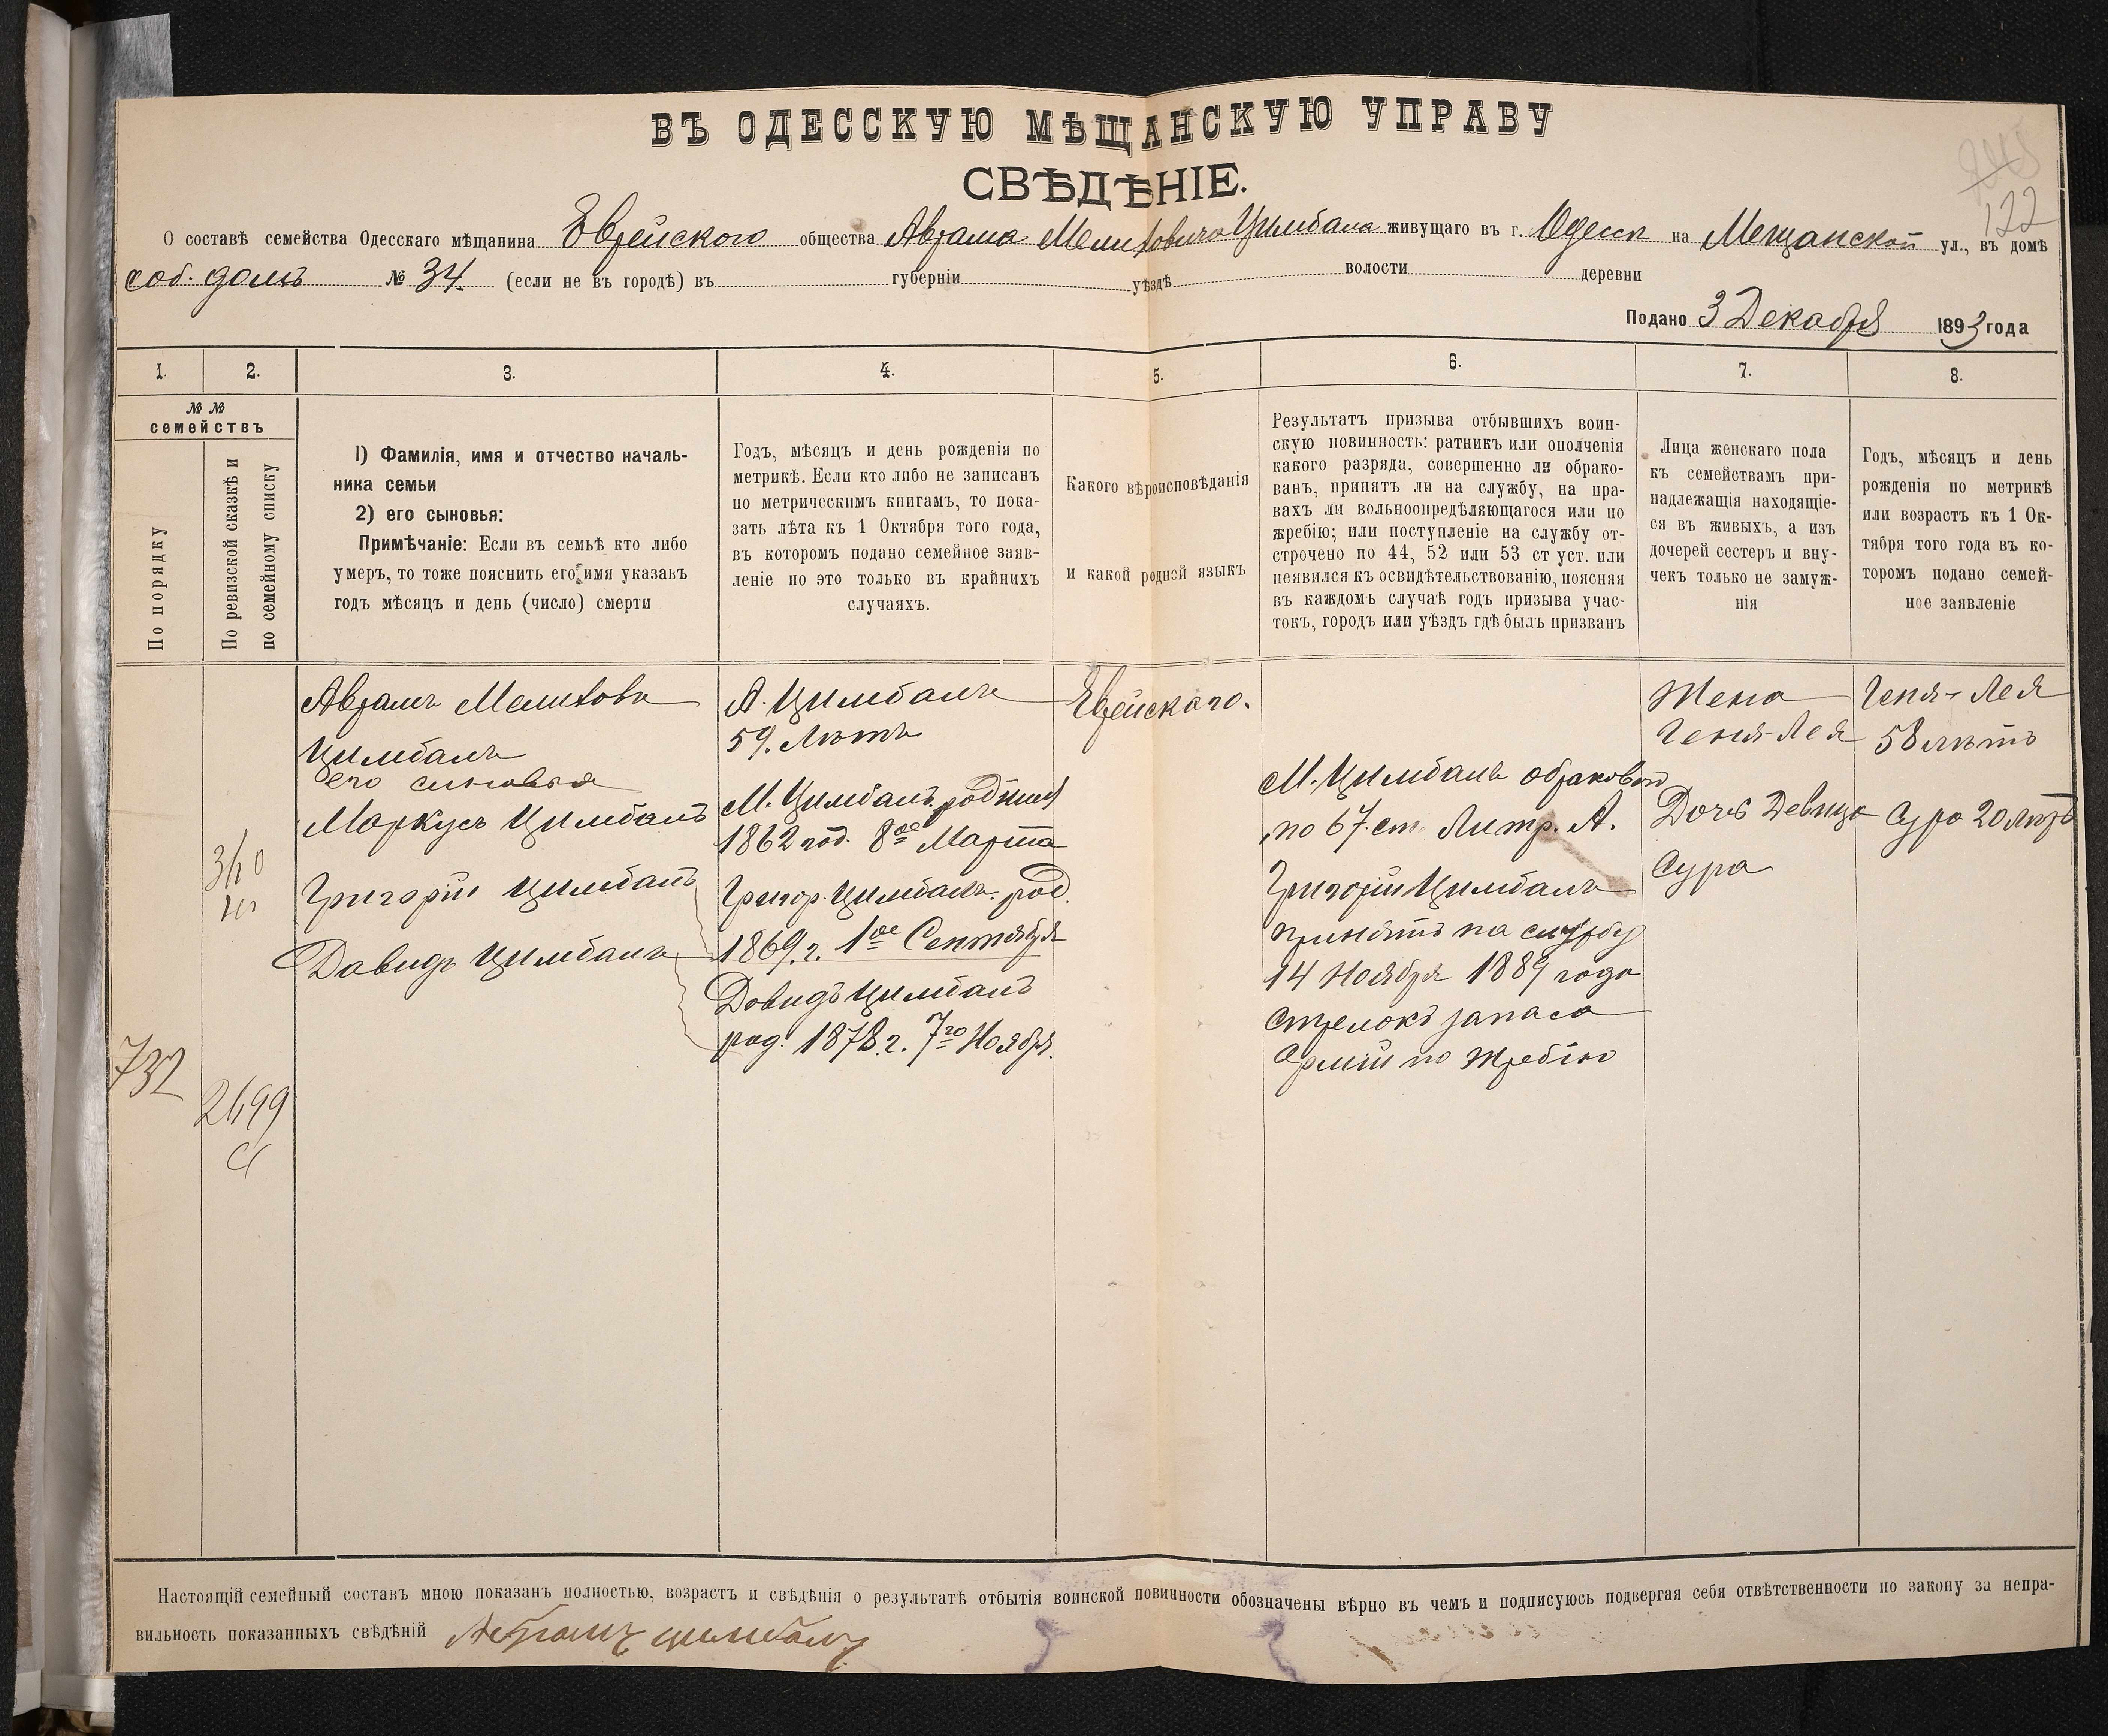 122
ВЪ ОДЕССКУЮ МѢЩАНСКУЮ УПРАВУ
СВѢДѢНІЕ.
О составѣ семейства Одесскаго мѣщанина Еврейского общества Аврама Мелиховича Цимбала живущаго въ г. Одессѣ на Мещанской ул., въ домѣ
соб. домъ № 34. (если не въ городѣ) въ губерніи уѣздѣ волости деревни
Подано 3 Декабря 1893 года
1. 2. 3. 4. 5. 6. 7. 8.
№ №
семействъ
По порядку
По ревизской сказкѣ и
по семейному списку
1) Фамилія, имя и отчество началь-
ника семьи
2) его сыновья:
Примѣчаніе: Если въ семьѣ кто либо
умеръ, то тоже пояснить его имя указавъ
годъ мѣсяцъ и день (число) смерти
Годъ, мѣсяцъ и день рожденія по
метрикѣ. Если кто либо не записанъ
по метрическимъ книгамъ, то пока-
зать лѣта къ 1 Октября того года,
въ которомъ подано семейное заяв-
леніе но это только въ крайнихъ
случаяхъ.
Какого вѣроисповѣданія
и какой родной языкъ
Результатъ призыва отбывшихъ воин-
скую повинность: ратникъ или ополченія
какого разряда, совершенно ли обрако-
ванъ, принятъ ли на службу, на пра-
вахъ ли вольноопредѣляющагося или по
жребію; или поступленіе на службу от-
строчено по 44, 52 или 53 ст уст. или
неявился къ освидѣтельствованію, поясняя
въ каждомъ случаѣ годъ призыва учас-
токъ, городъ или уѣздъ гдѣ былъ призванъ
Лица женскаго пола
къ семействамъ при-
надлежащія находящіе-
ся въ живыхъ, а изъ
дочерей сестеръ и вну-
чекъ только не замуж-
нія
Годъ, мѣсяцъ и день
рожденія по метрикѣ
или возрастъ къ 1 Ок-
тября того года въ ко-
торомъ подано семей-
ное заявленіе
732
2499
Аврамъ Мелиховъ
Цимбалъ
его сыновья
Маркусъ Цимбалъ
Григорій Цимбалъ
Давидъ Цимбалъ
А. Цимбалъ
59. Лѣтъ
М. Цимбалъ родился
1862 год. 8ое Марта
Григор. Цимбалъ. род.
1869. г. 1ое Сентября
Довидъ Цимбалъ
род. 1878. г. 7го Ноября.
Еврейскаго.
М. Цимбалъ обракован
по 67. ст. Литр. А.
Григорій Цимбалъ
принятъ на службу
14 Ноября 1889 года
стрелокъ запаса
Арміи по жребію
Жена
Геня-Лея
Дочь Девица
Сура
Геня-Лея
58 лѣтъ
Сура 20 лѣтъ
Настоящій семейный составъ мною показанъ полностью, возрастъ и свѣдѣнія о результатѣ отбытія воинской повинности обозначены вѣрно въ чемъ и подписуюсь подвергая себя отвѣтственности по закону за непра-
вильность показанныхъ свѣдѣній Абрамъ цимбалъ